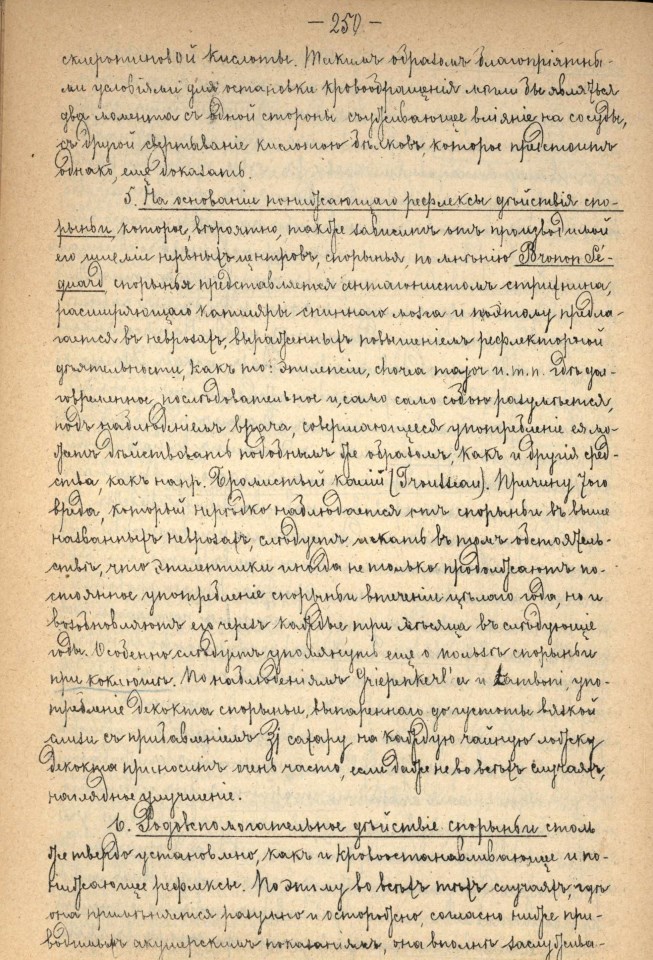 — 250 —
склеротиновой кислоты. Такимъ образомъ благопріятны-
ми условіями для остановки кровообращенія могли бы являться
два момента съ одной стороны съуживающее вліяніе на сосуды,
съ другой свертываніе кислотою бѣлковъ, которое предстоитъ
однако, еще доказать.
5. На основаніи понижающаго рефлексы дѣйствія спо-
рыньи, которое, вѣроятно, также зависитъ отъ производимой
его ишеміи нервныхъ центровъ, спорынья, по мнѣнію Bronon Sé-
guard спорынья представляется антагонистомъ стрихнина,
расширяющаго капиляры спиннаго мозга и поэтому предла-
гается въ неврозахъ, выраженныхъ повышеніемъ рефлекторной
дѣятельности, какъ то: эпилепсіи, chorea major и.т.п. гдѣ дол-
говременное, послѣдовательное и, само само собою разумѣется,
подъ наблюденіемъ врача, совершающееся употребленіе ея мо-
жетъ дѣйствовать подобнымъ же образомъ, какъ и другія сред-
ства, какъ напр. Бромистый калій (Troussian). Причину того
вреда, который нерѣдко наблюдается отъ спорыньи въ выше
названныхъ неврозахъ, слѣдуетъ искать въ томъ обстоятель-
ствѣ, что эпилептики иногда не только продолжаютъ по-
стоянное употребленіе спорыньи втеченіи цѣлаго года, но и
возобновляютъ его черезъ каждые три мѣсяца въ слѣдующіе
годы. Особенно слѣдуетъ упомянуть еще о пользѣ спорыньи
при коклюшѣ. По наблюденіямъ Griepenkerl'я и употре-
требленіе декокта спорыньи, выпареннаго до густоты вязкой
слизи съ прибавленіемъ Ʒj сахару на каждую чайную ложку
декокта приноситъ очень часто, если даже не во всѣхъ случаяхъ,
наглядное улучшеніе.
6. Родовспомогательное дѣйствіе спорыньи столь
же твердо установлено, какъ и кровоостанавливающее и по-
нижающее рефлексы. Поэтому во всѣхъ тѣхъ случаяхъ, гдѣ
она примѣняется разумно и осторожно, согласно ниже при-
водимымъ акушерскимъ показаніямъ, она вполнѣ заслужива-